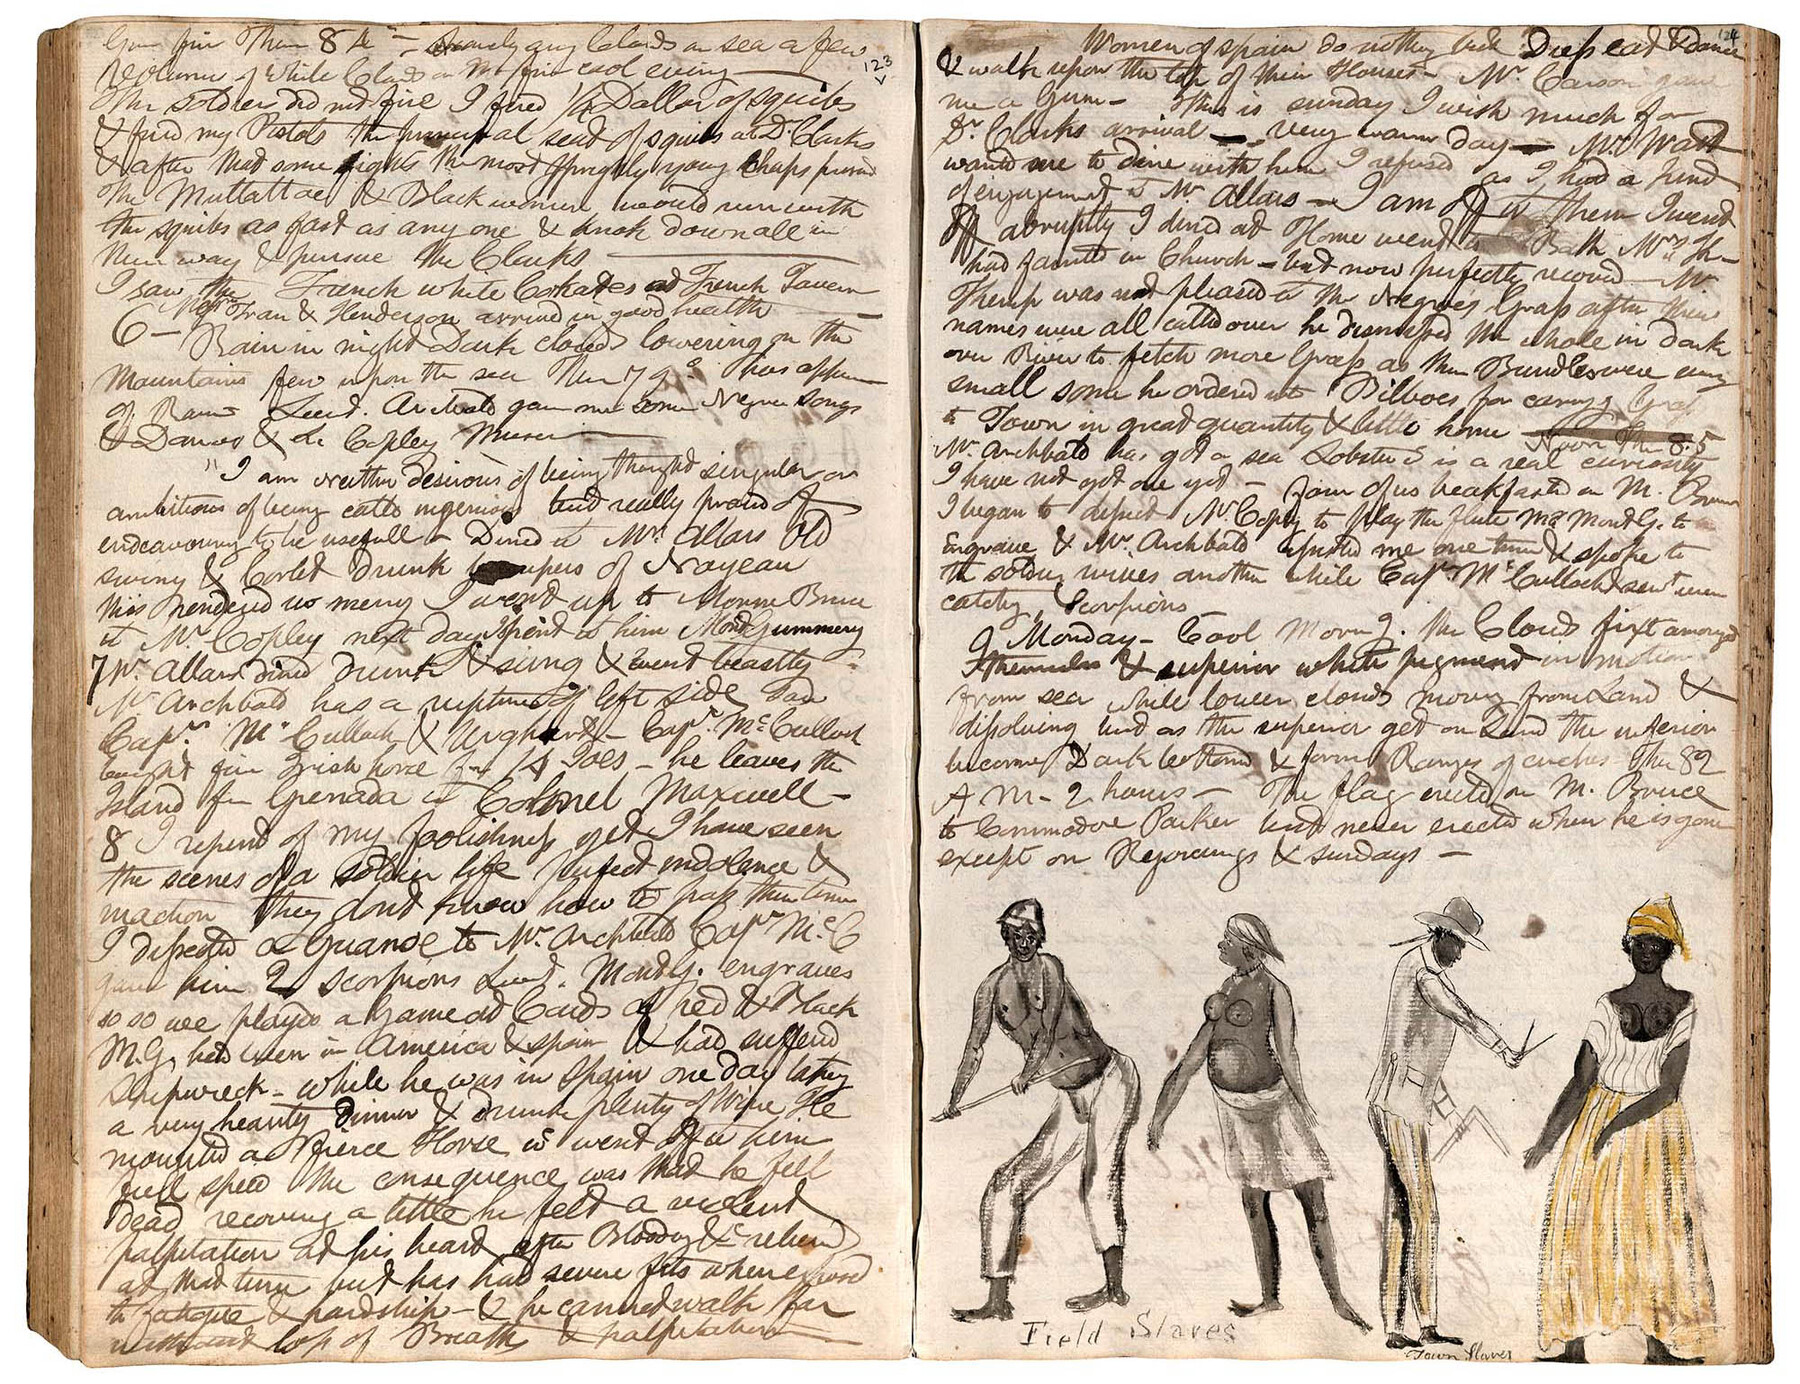 Ther 84 – Scarcely any Clouds on sea a few
123
of White Clouds on M. fine cool evening
The soldier did not fire I fired 1/2 Dollar of squibs
& fired my Pistols the principal seat of squibs at Dr. Clarks
& after that some fights the most sprightly young Chaps pursued
The Mulattoes & Black women would run with
the squibs as fast as any one & knock down all in
their way & pursue the Clarks
I saw the French white Cokades at French Tavern
Messrs Fran & Henderson arrived in good health
6 – Rain in night Dark clouds lowering on the
Mountains few upon the sea Ther 79° has appear
of Rain Lieut. Archbald gave me some Negroe songs
& Dances & de Copley Music
"I am neither desirous of being thought singular or
ambitious of being called ingenious but really proud of
endeavouring to be usefull – Dined at Mr. Allars Old
swing & Corlet drunk bumpers of Noyeau
this rendered us merry I went up to Morne Bruce
to Mr. Copley next day I spent with him Montgummery
7 Mr. Allard dined drunk & sung & went beastly
Mr. Archbald has a rupture of left side saw
Capn. McCulloch & Urghard – Capn. McCulloch
bought fine Irish horse for 14 Joes – he leaves the
Island for Grenada with Colonel Maxwell –
8 I repent of my foolishness yet I have seen
the scenes of a soldier life perfect indolence &
inaction they dont know how to pass their time
I dissected a Guanoe to Mr. Archbald Capn. McC
gave him 2 scorpions Lieut. Montg. engraves
so so we played a Game at Cards of red & black
M.G. had been in America & spain & had sufferd
Shipwreck – while he was in Spain one day taking
a very hearty Dinner & drunk plenty of Wine He
mounted a fierce Horse & went off with him
full speed the consequence was that he fell
Dead recovering a little he felt a violent
palpitation at his heart after Blooding &c relieved
at that time but has had severe fits when exposed
to fatigue & hardship – & he cannot walk far
without loss of Breath & palpitation
124
Women of spain do nothing but Dress eat & dance
& walk upon the top of their Houses – Mr. Carson gave
me a Gun – This is sunday I wish much for
Dr. Clarks arrival – very warm day – Mr. Watt
wanted me to dine with him I refused as I had a kind
of engagement to Mr. Allars – I am off with them I went
off abruptly I dined at Home went to Bath Mrs. Th–
had fainted in Church – but now perfectly recoverd – Mr.
Themp was not pleased with the Negroes Grass after their
names were all called over he dismissed the whole in dark
over River to fetch more Grass as their Bundles were very
small some he ordered into Bilboes for carryg Grass
to Town in great quantity & little home Noon Ther 85
Mr. Archbald has got a sea Lobster & is a real curiosity
I have not got one yet – four of us breakfasted on M. Bruce
I began to dissect Mr. Copley to play the flute Mr. MontG. to
Engrave & Mr. Archbald assisted me one time & spoke to
the soldiers wives another while Capn. McCulloch sent men
catchg Scorpions
9 Monday – Cool Morng. the Clouds fixt amongst
themselves & superior white pigment in motion
from sea while lower clouds moving from Land &
dissolving but as the superior get on Land the inferior
become Dark bottomd & form Ranges of arches Ther 82
A M – 2 hours – The flag erected on M. Bruce
to Commodore Parker but never erected when he is gone
except on Rejoicings & sundays –
Field Slaves
Town Slaves